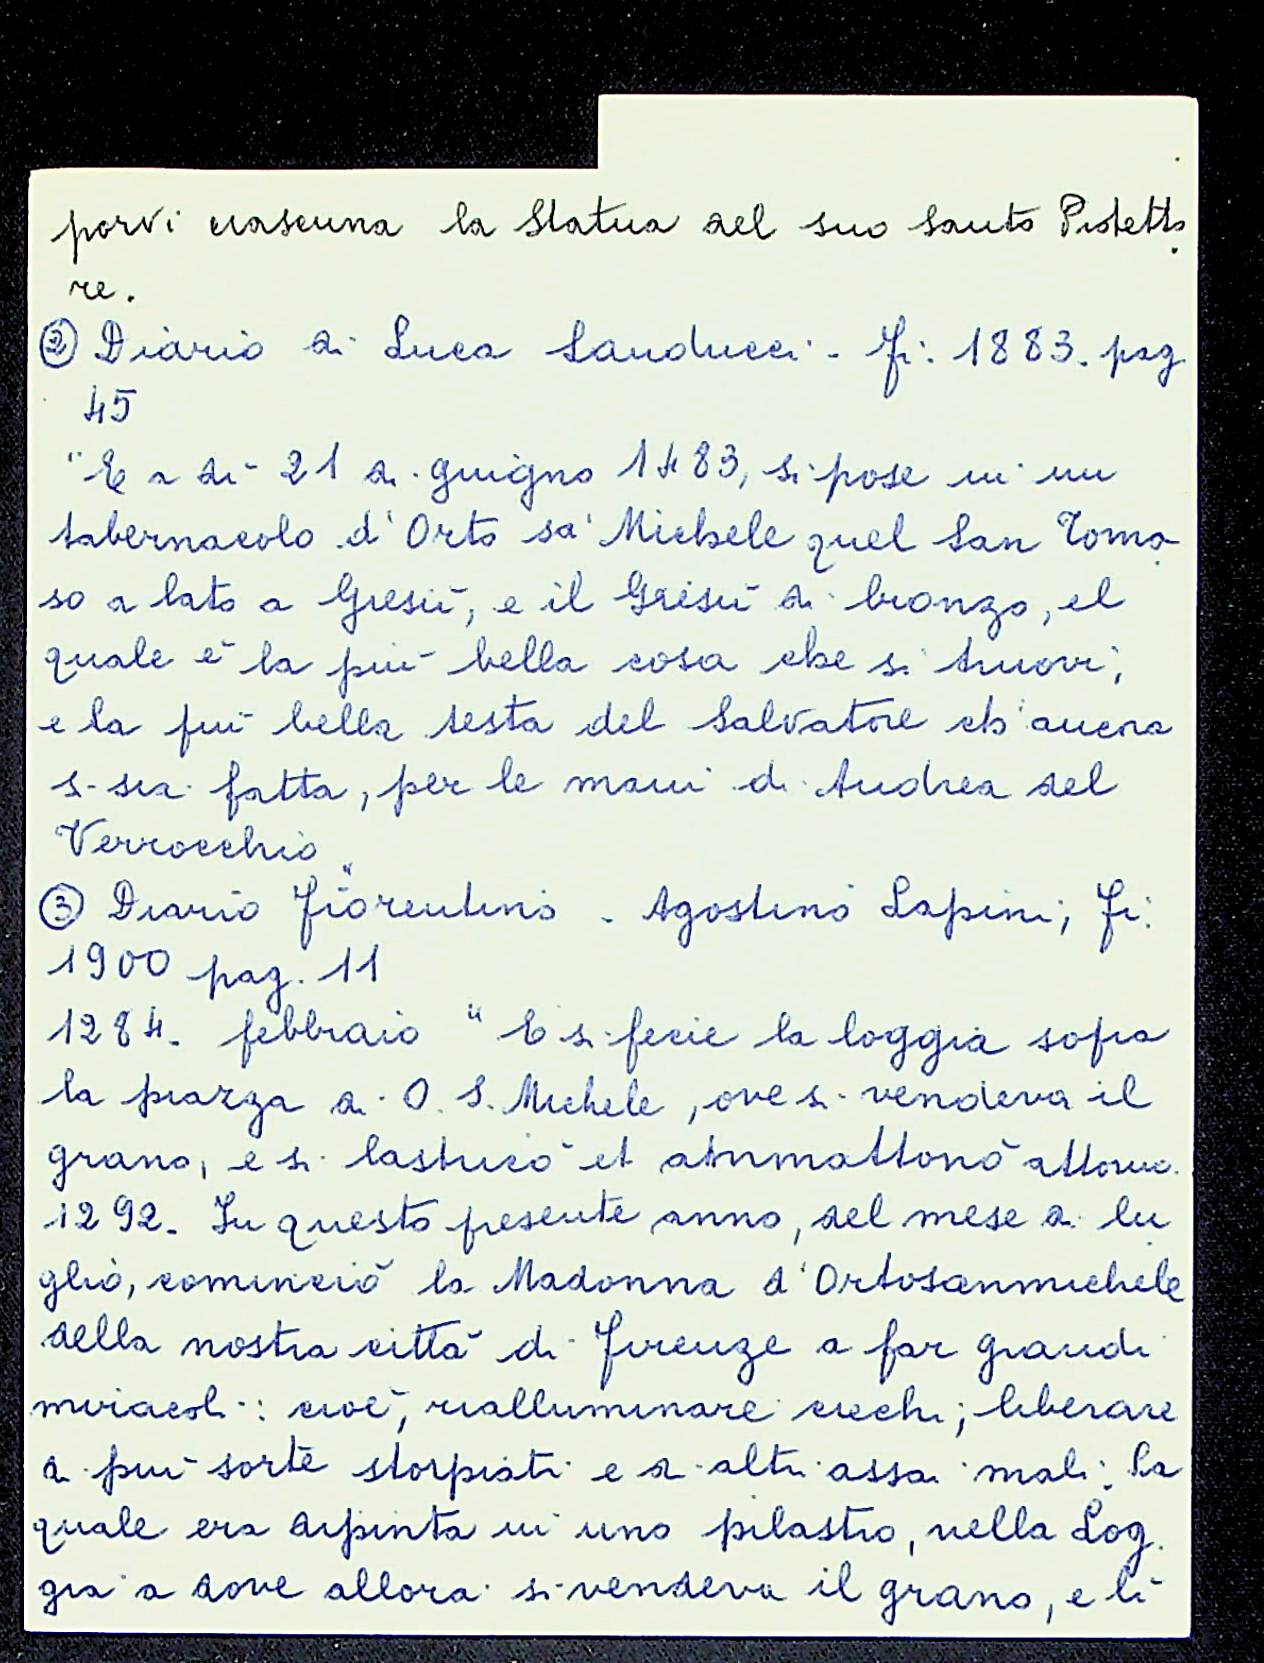 porvi ciascuna la Statua del suo Santo Protetto
re.
② Diario di Luca Landucci - Fi: 1883. pag
45
"E a dì 21 di giugno 1483, si pose in un
tabernacolo d'Orto sa' Michele quel San Toma
so a lato a Gresù, e il Gresù di bronzo, el
quale è la più bella cosa che si truovi,
e la più bella testa del Salvatore ch'ancora
si sia fatta, per le mani di Andrea del
Verrocchio"
③ Diario Fiorentino - Agostino Lapini; Fi:
1900 pag. 11
1284. febbraio "E si fecie la loggia sopra
la piazza di O. S. Michele, ove si vendeva il
grano, e si lastricò et ammattonò attorno.
1292. In questo presente anno, del mese di lu
glio, cominciò la Madonna d'Ortosanmichele
della nostra città di Firenze a far grandi
miracoli: cioè, rialluminare ciechi; liberare
di più sorte storpiati e di altri assai mali; la
quale era dipinta in uno pilastro, nella Log
gia a dove allora si vendeva il grano, e lì